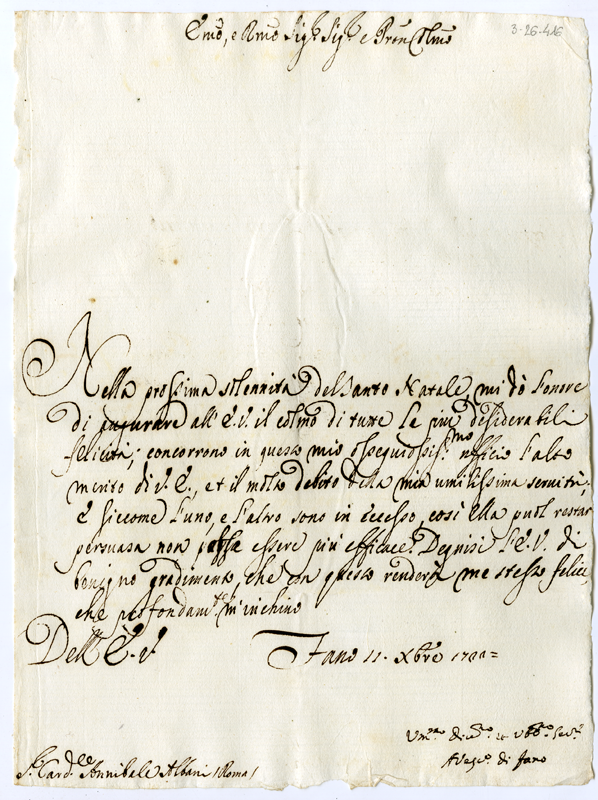 3-26-426
Emo, e Rmo Sigr Sigr e Pron Colmo
Nella prossima solennità del Santo Natale, mi dò l'onore
di augurare all'E.V. il colmo di tutte le più desiderabili
felicità; concorrono in questo mio ossequiosissmo ufficio l'alto
merito di V.E., et il molto debito della mia umilissima servitù;
E siccome l'uno, e l'altro sono in eccesso, così ella può restar
persuasa non possa essere più efficace. Degnisi l'E.V. di
benigno gradimento, che con questo renderà me stesso felice,
che profondamte m'inchino
Dell'E.V.
Fano 11. Xbre
Umo Devmo et Obbmo Serre
A Vesco di Fano
Sr Cardle Annibale Albani (Roma)